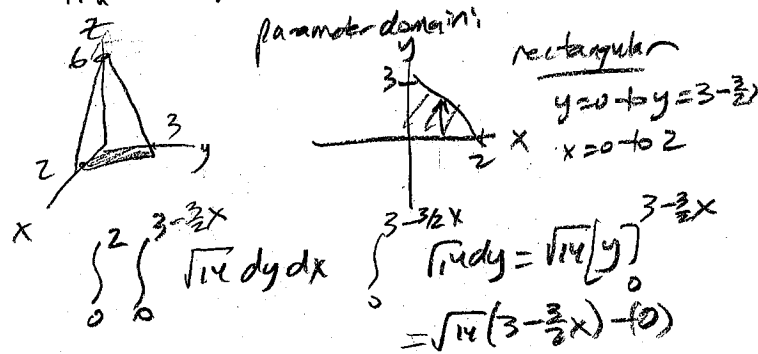 z
6
3
2
y
x
parameter domain:
y
3
x
2
rectangular
y=0 to y=3-3/2
x=0 to 2
∫₀² ∫₀^(3-3/2x) √14 dy dx
∫₀^(3-3/2x) √14 dy = √14 [y]₀^(3-3/2x)
= √14 (3-3/2x) - (0)